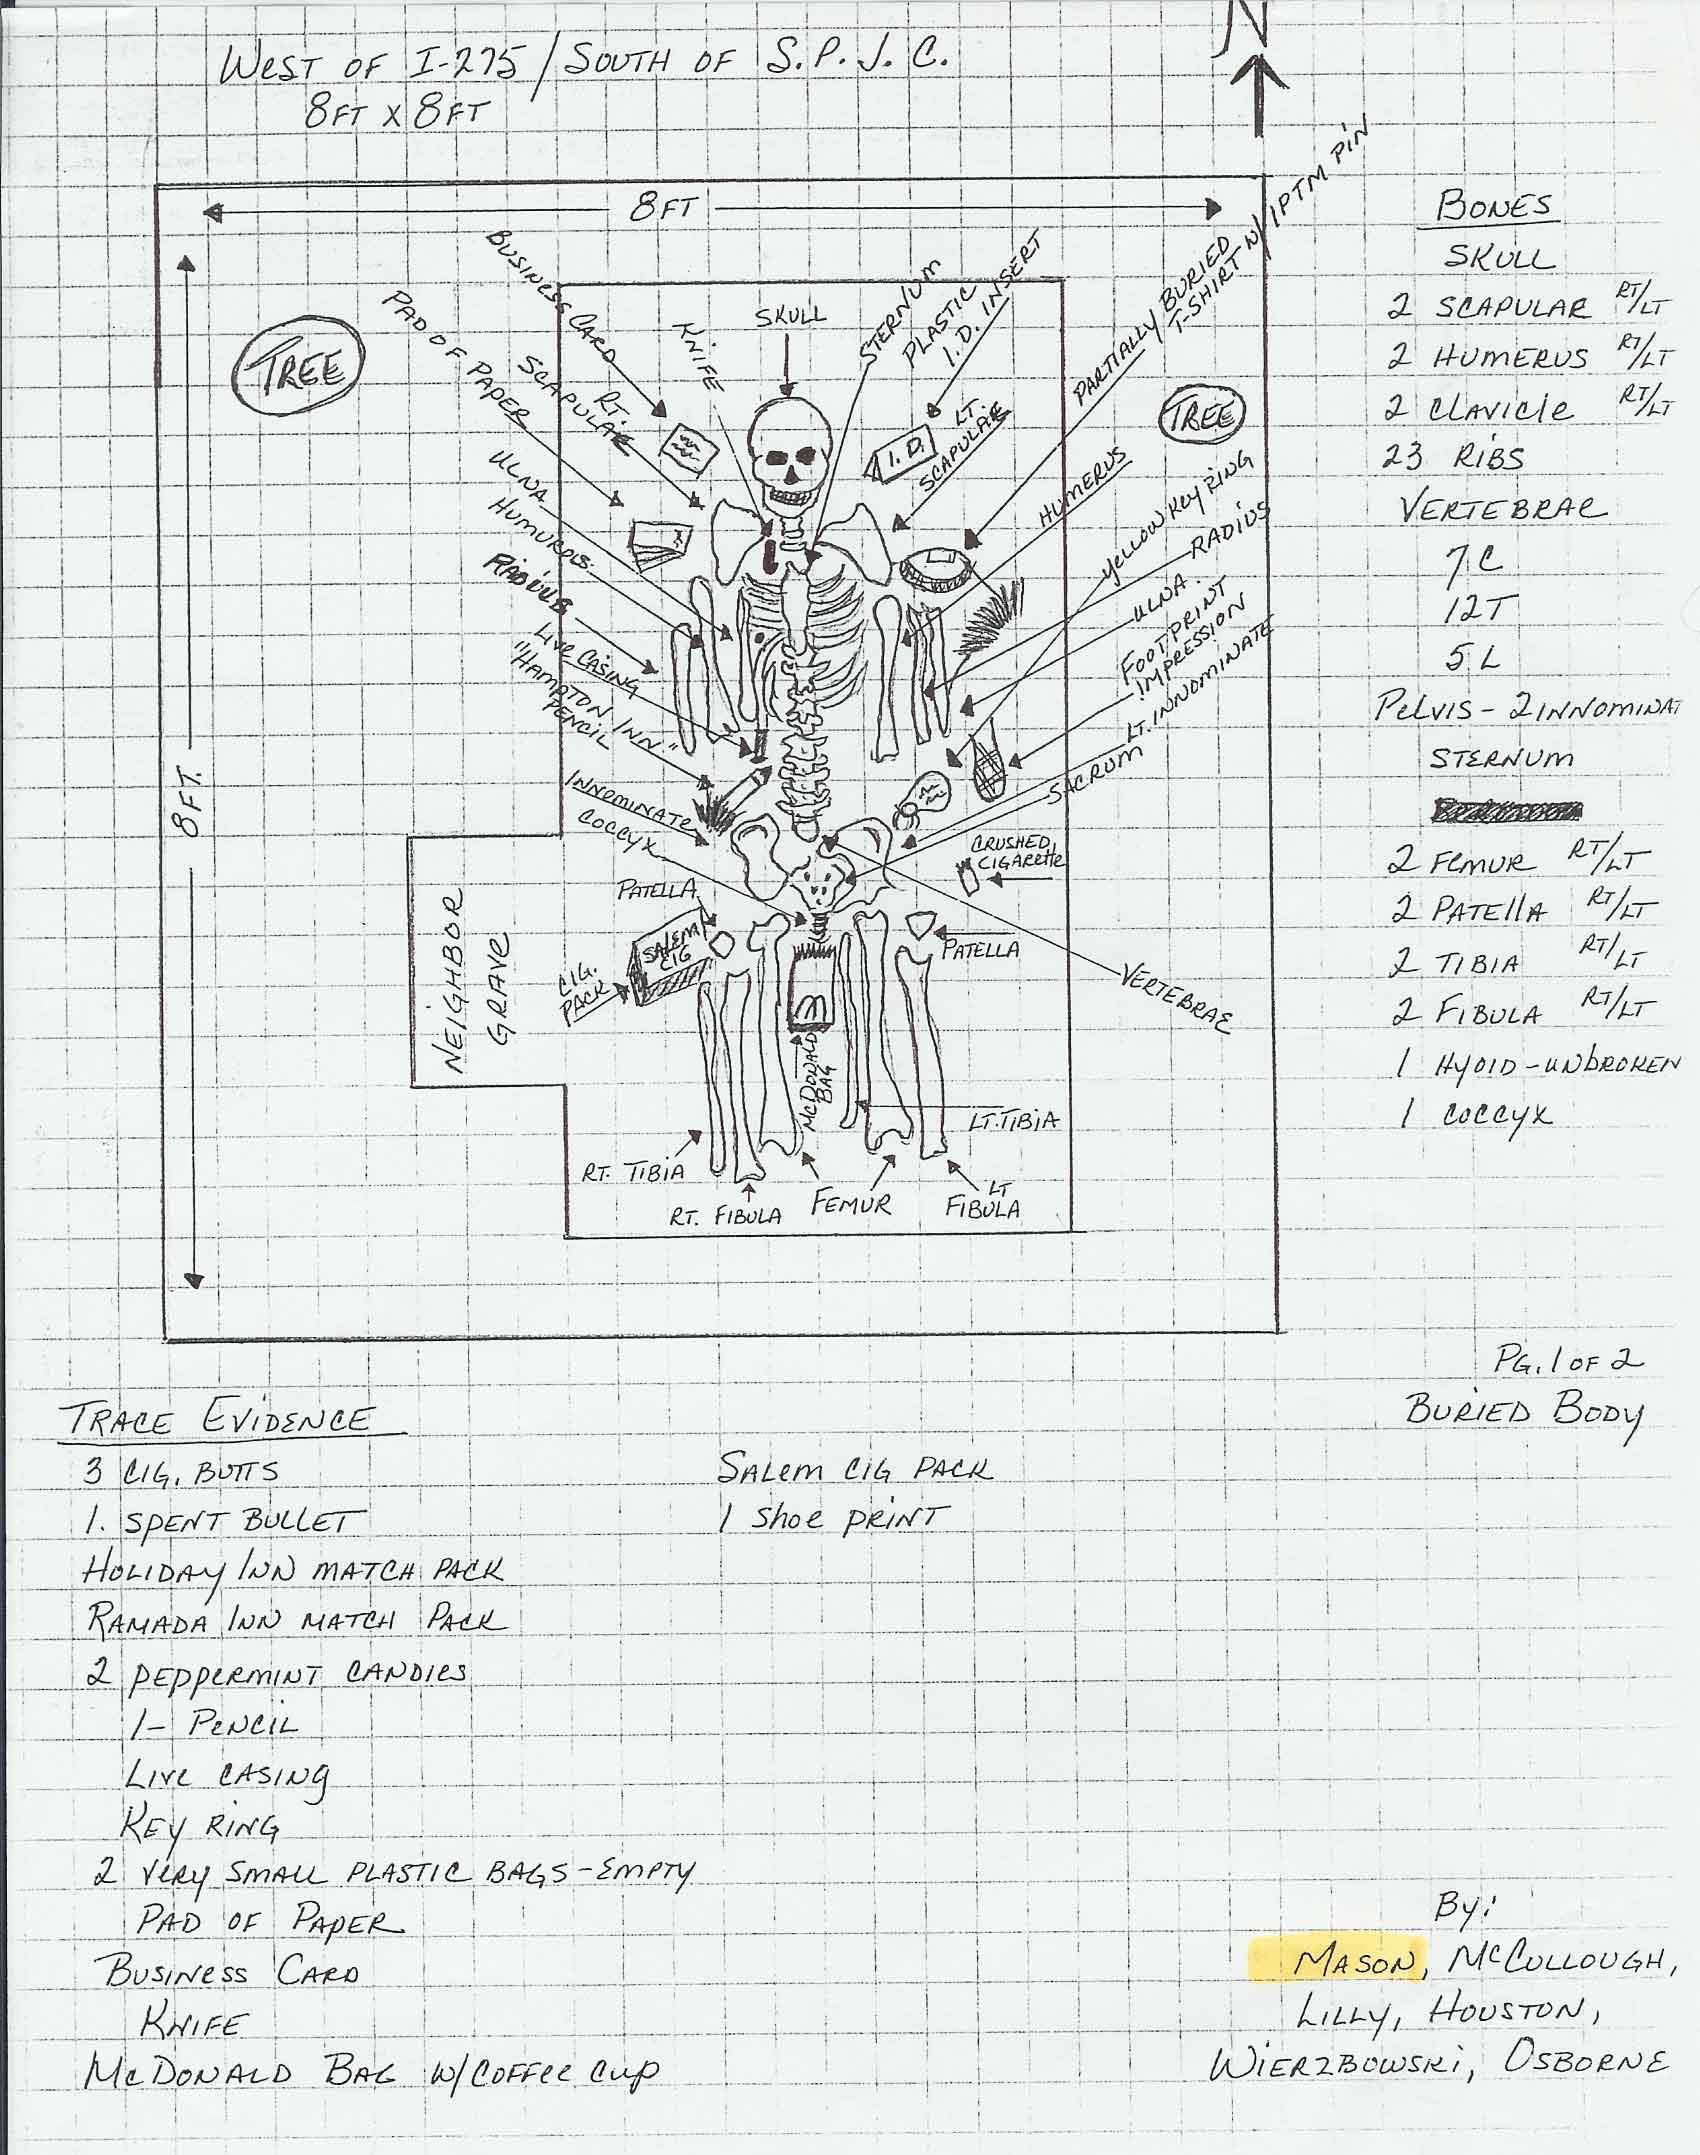 N
WEST OF I-275 / SOUTH OF S.P.J.C.
8FT X 8FT
8FT
8FT.
TREE
TREE
BUSINESS CARD
PAD OF PAPER
RT. SCAPULAR
KNIFE
SKULL
STERNUM
PLASTIC
I.D. INSERT
I.D.
LT.
SCAPULAR
PARTIALLY BURIED
T-SHIRT W/ IPTM PIN
HUMERUS
YELLOW KEY RING
RADIUS
ULNA
FOOTPRINT
IMPRESSION
LT. INNOMINATE
SACRUM
ULNA
HUMUROUS
RADIUS
LIVE CASING
"HAMPTON INN"
PENCIL
INNOMINATE
COCCYX
PATELLA
CRUSHED
CIGARETTE
SALEM
CIG
CIG.
PACK
PATELLA
VERTEBRAE
NEIGHBOR
GRAVE
McDONALD
BAG
LT. TIBIA
RT. TIBIA
RT. FIBULA
FEMUR
LT
FIBULA
BONES
SKULL
2 SCAPULAR RT/LT
2 HUMERUS RT/LT
2 CLAVICLE RT/LT
23 RIBS
VERTEBRAE
7 C
12 T
5 L
PELVIS - 2 INNOMINAT
STERNUM
2 FEMUR RT/LT
2 PATELLA RT/LT
2 TIBIA RT/LT
2 FIBULA RT/LT
1 HYOID - UNBROKEN
1 COCCYX
PG. 1 OF 2
BURIED BODY
TRACE EVIDENCE
3 CIG. BUTTS
1. SPENT BULLET
HOLIDAY INN MATCH PACK
RAMADA INN MATCH PACK
2 PEPPERMINT CANDIES
1 - PENCIL
LIVE CASING
KEY RING
2 VERY SMALL PLASTIC BAGS - EMPTY
PAD OF PAPER
BUSINESS CARD
KNIFE
McDONALD BAG W/COFFEE CUP
SALEM CIG PACK
1 SHOE PRINT
By:
MASON, McCULLOUGH,
LILLY, HOUSTON,
WIERZBOWSKI, OSBORNE